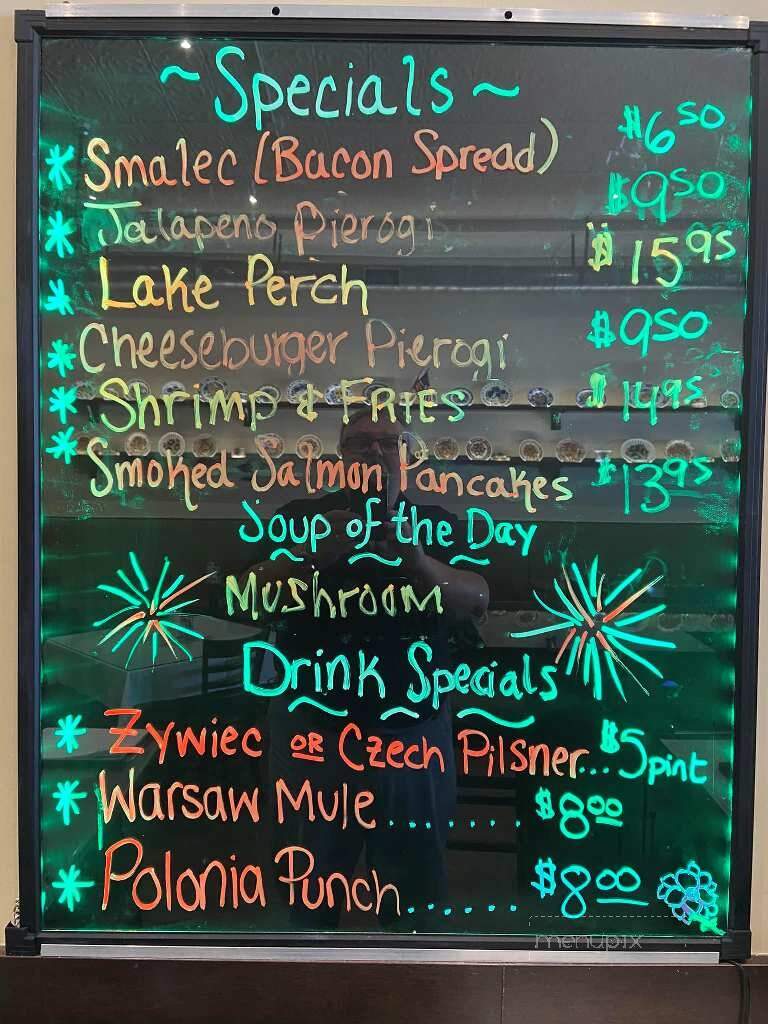 ~ Specials ~
* Smalec (Bacon Spread) $6 50
* Jalapeno Pierogi $9 50
* Lake Perch $15 95
* Cheeseburger Pierogi $9 50
* Shrimp & Fries $14 95
* Smoked Salmon Pancakes $13 95
Soup of the Day
Mushroom
Drink Specials
* Zywiec or Czech Pilsner... $5 pint
* Warsaw Mule....... $8 00
* Polonia Punch....... $8 00
menupix